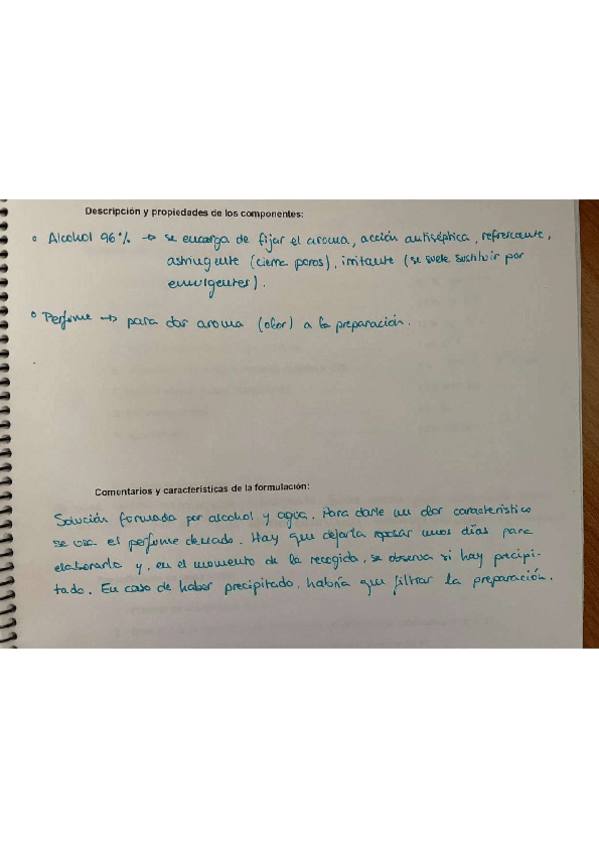 Descripción y propiedades de los componentes:
• Alcohol 96% → se encarga de fijar el aroma, acción antiséptica, refrescante,
astringente (cierra poros), irritante (se suele sustituir por
emulgentes).
• Perfume → para dar aroma (olor) a la preparación.
Comentarios y características de la formulación:
Solución formada por alcohol y agua. Para darle un olor característico
se usa el perfume deseado. Hay que dejarla reposar unos días para
elaborarla y, en el momento de la recogida, se observa si hay precipi-
tado. En caso de haber precipitado, habría que filtrar la preparación.